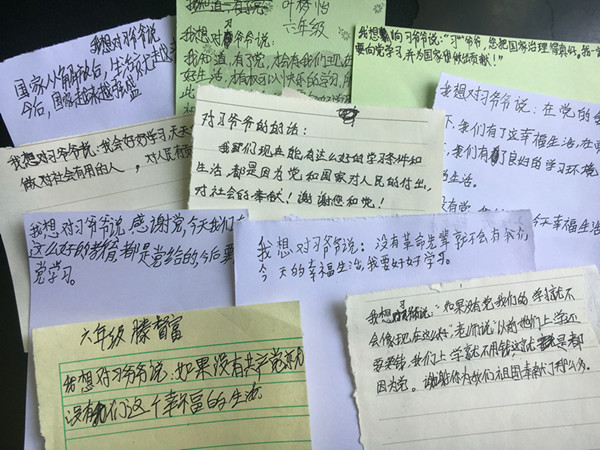 我想对习爷爷说
国家从解放后，生活越来越
今后，国家越来越强盛
六年级
我想对习爷爷说：
我知道，有了党，才会有我们现在
好生活，有
我想向习爷爷说："习"爷爷，您把国家治理得真好。我一定
要向党学习，并为国家做出贡献！"
我想对习爷爷说：在党的
我们有了这幸福生活，在
我们有了良好的学习环境
的生活。
今天幸福生活
我想对习爷爷说：我会好好学习，天天
做对社会有用的人，对人民有
对习爷爷的的话：
我们现在能有这么好的学习条件和
生活，都是因为党和国家对人民的付出，
对社会的奉献！谢谢您和党！
我想对习爷爷说，感谢党，今天我们有
这么好的教育都是党给的，今后要
党学习。
我想对习爷爷说：没有革命先辈就不会有我们
今天的幸福生活，我要好好学习。
六年级 滕智富
我想对习爷爷说：如果没有共产党
没有我们这个幸富的生活
我想对习爷爷说："如果没有党我们的学习就不
会像现在这么好，老师说以前他们上学还
要表钱，我们上学就不用钱这就是都
因为党。谢谢你为我们祖国奉献了那么多。